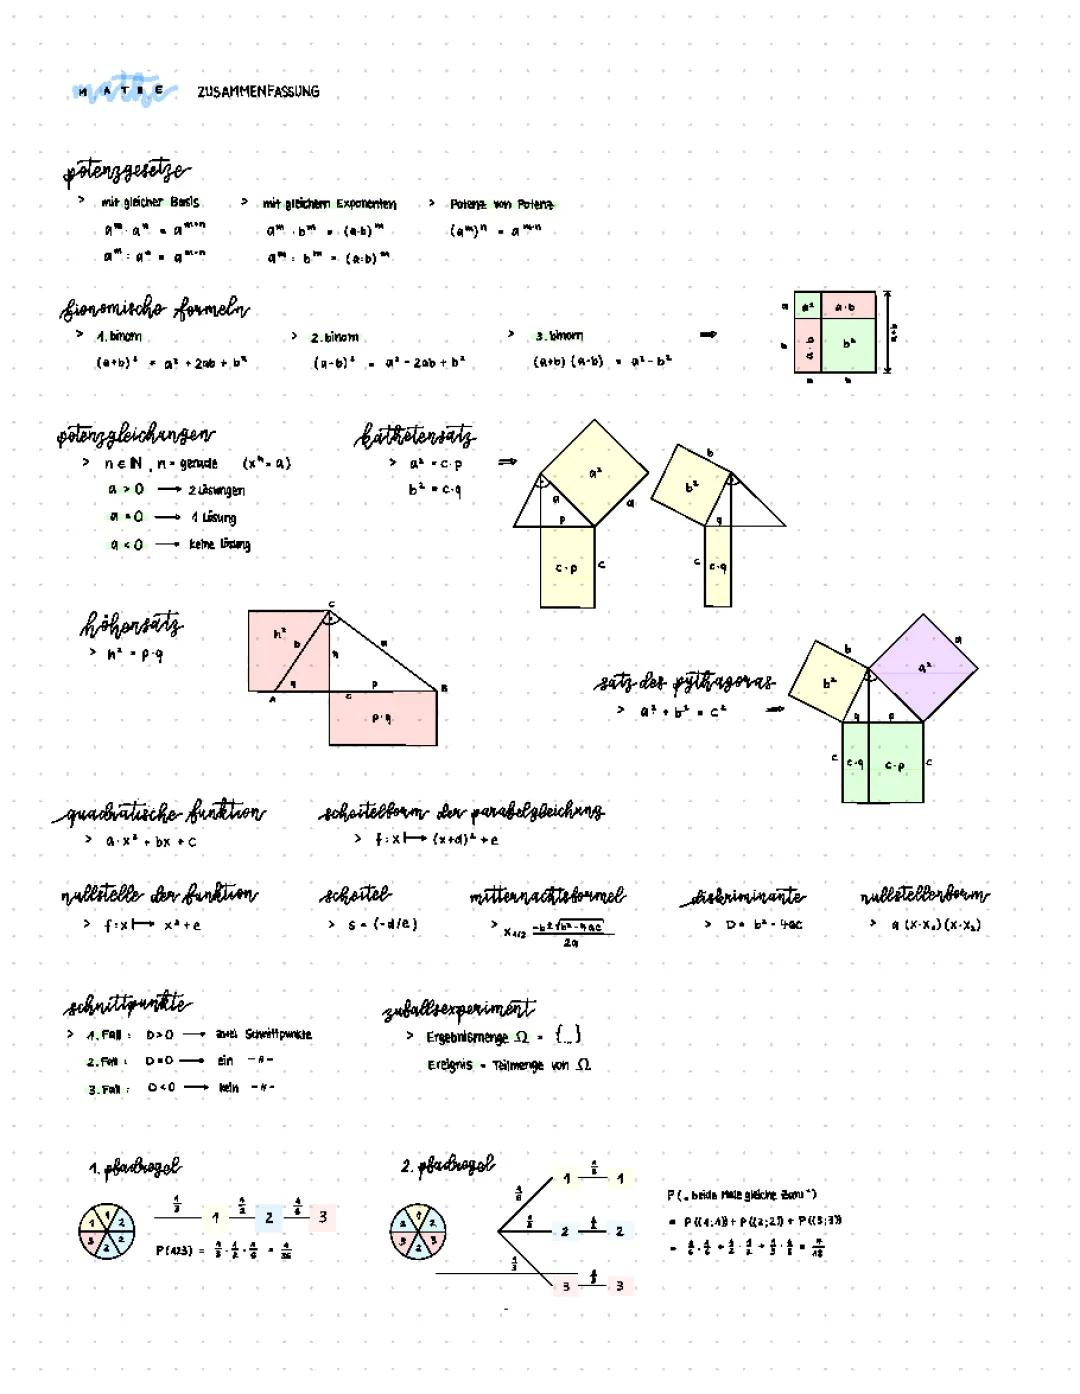 MATHE ZUSAMMENFASSUNG
potenzgesetze
> mit gleicher Basis > mit gleichem Exponenten > Potenz von Potenz
aᵐ · aⁿ = aᵐ⁺ⁿ aᵐ · bᵐ = (a·b)ᵐ (aᵐ)ⁿ = aᵐ·ⁿ
aᵐ : aⁿ = aᵐ⁻ⁿ aᵐ : bᵐ = (a:b)ᵐ
binomische formeln
> 1. binom > 2. binom > 3. binom ⇒
(a+b)² = a² + 2ab + b² (a-b)² = a² - 2ab + b² (a+b) (a-b) = a² - b²
a a² a·b
b a·b b² a+b
a b
potenzgleichungen
> n ∈ ℕ, n = gerade (xⁿ = a)
a > 0 → 2 Lösungen
a = 0 → 1 Lösung
a < 0 → keine Lösung
kathetensatz
> a² = c·p ⇒
b² = c·q
a² a a p c·p c
b b² q c c·q
höhensatz
> h² = p·q
C h² b h a
q p A c B
p·q
satz des pythagoras
> a² + b² = c² ⇒
b b² a² a
q p
c c·q c·p c
quadratische funktion
> a·x² + bx + c
scheitelform der parabelgleichung
> f: x ↦ (x+d)² + e
nullstelle der funktion
> f: x ↦ x² + e
scheitel
> S = (-d/e)
mitternachtsformel
> x₁/₂ -b±√b²-4ac / 2a
diskriminante
> D = b² - 4ac
nullstellenform
> a (x-x₁) (x-x₂)
schnittpunkte
> 1. Fall: D>0 → zwei Schnittpunkte
2. Fall: D=0 → ein -"-
3. Fall: D<0 → kein -"-
zufallsexperiment
> Ergebnismenge Ω = {...}
Ereignis = Teilmenge von Ω
1. pfadregel
1 2 2 2 3 3
1/3 1 1/2 2 1/6 3
P(123) = 1/3 · 1/2 · 1/6 = 1/36
2. pfadregel
1/6 1 1/6 1
1/2 2 1/2 2
1/3 3 1/3 3
P(„beide Male gleiche Zahl")
= P({1;1}) + P({2;2}) + P({3;3})
= 1/6 · 1/6 + 1/2 · 1/2 + 1/3 · 1/3 = 7/18